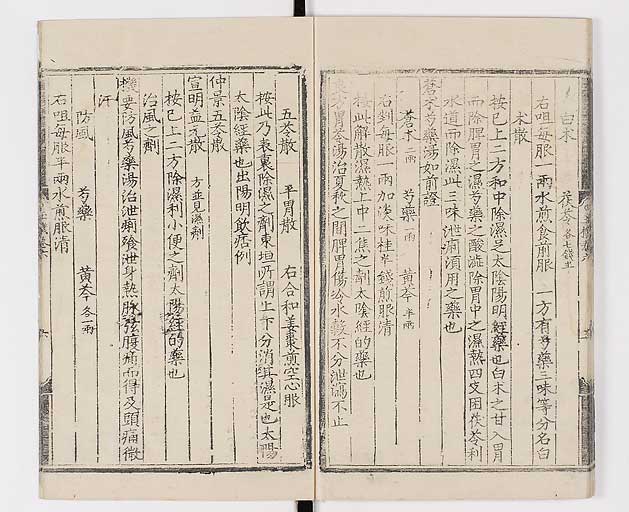 白朮　茯苓各七錢五
右咀每服一兩水煎食前服　一方有芍藥三味等分名白
朮散
按已上二方和中除濕足太陰陽明經藥也白朮之甘入胃
而除脾胃之濕芍藥之酸澁除胃中之濕熱四支困茯苓利
水道而除濕此三味泄痢須用之藥也
蒼朮芍藥湯如前證
蒼朮二兩　芍藥一兩　黃芩半兩
右剉每服一兩加淡味桂半錢煎服清
按此解散濕熱上中二焦之劑太陰經的藥也
東方胃苓湯治夏秋之間脾胃傷冷水穀不分泄瀉不止
五苓散　平胃散　右合和姜棗煎空心服
按此乃表裏除濕之劑東垣所謂上下分消其濕是也太陽
太陰經藥也出陽明飲痞例
仲景五苓散
宣明益元散　方並見濕劑
按已上二方除濕利小便之劑太陽經的藥也
治風之劑
機要防風芍藥湯治泄痢飱泄身熱脉弦腹痛而得及頭痛微
汗
防風　芍藥　黃芩各一兩
右咀每服半兩水煎服清